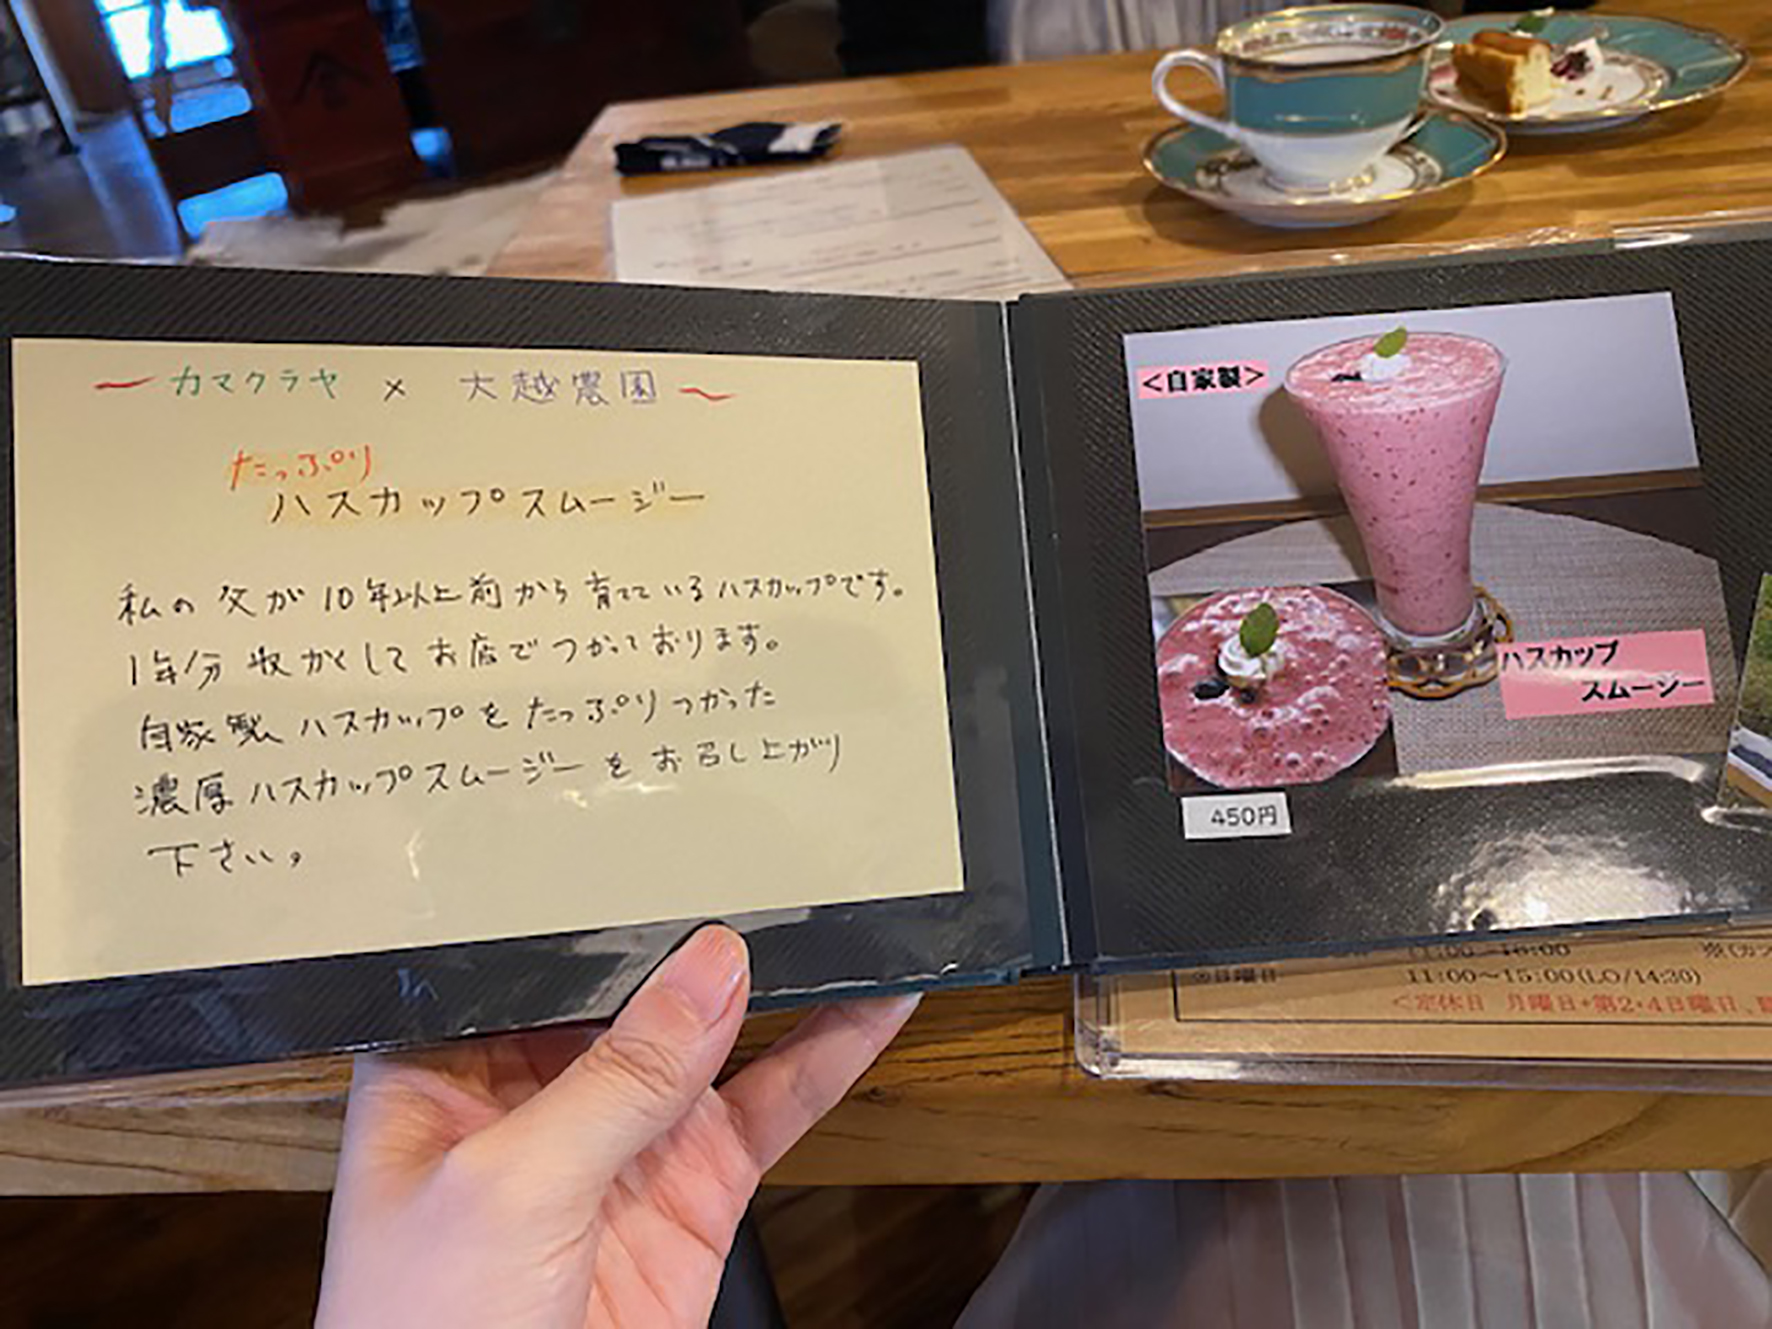 ～カマクラヤ × 大越農園～
たっぷり
ハスカップスムージー
私の父が10年以上前から育てているハスカップです。
1年分収かくしてお店でつかっております。
自家製ハスカップをたっぷりつかった
濃厚ハスカップスムージーをお召し上がり
下さい。
<自家製>
ハスカップ
スムージー
450円
11:00～16:00
◎日曜日 11:00～15:00(LO/14:30)
<定休日 月曜日+第2・4日曜日、